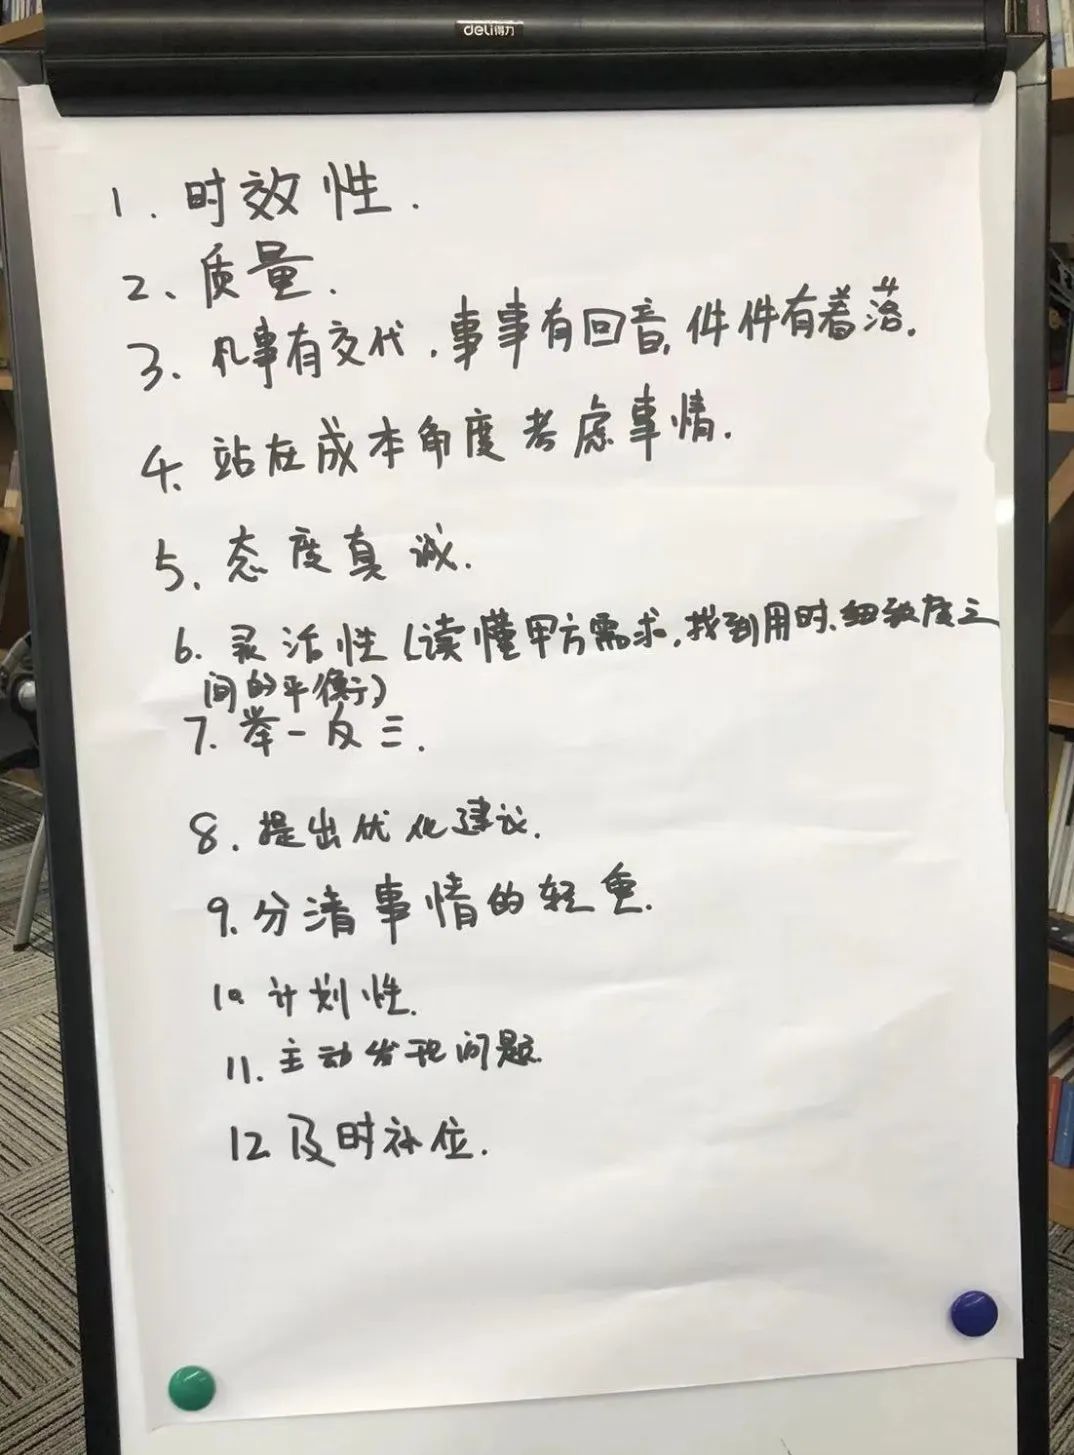 deli得力
1. 时效性.
2、质量.
3、凡事有交代,事事有回音,件件有着落.
4、站在成本角度考虑事情.
5、态度真诚.
6. 灵活性(读懂甲方需求,找到用时、细致度之
间的平衡)
7. 举一反三.
8. 提出优化建议.
9. 分清事情的轻重.
10. 计划性.
11. 主动发现问题.
12 及时补位.